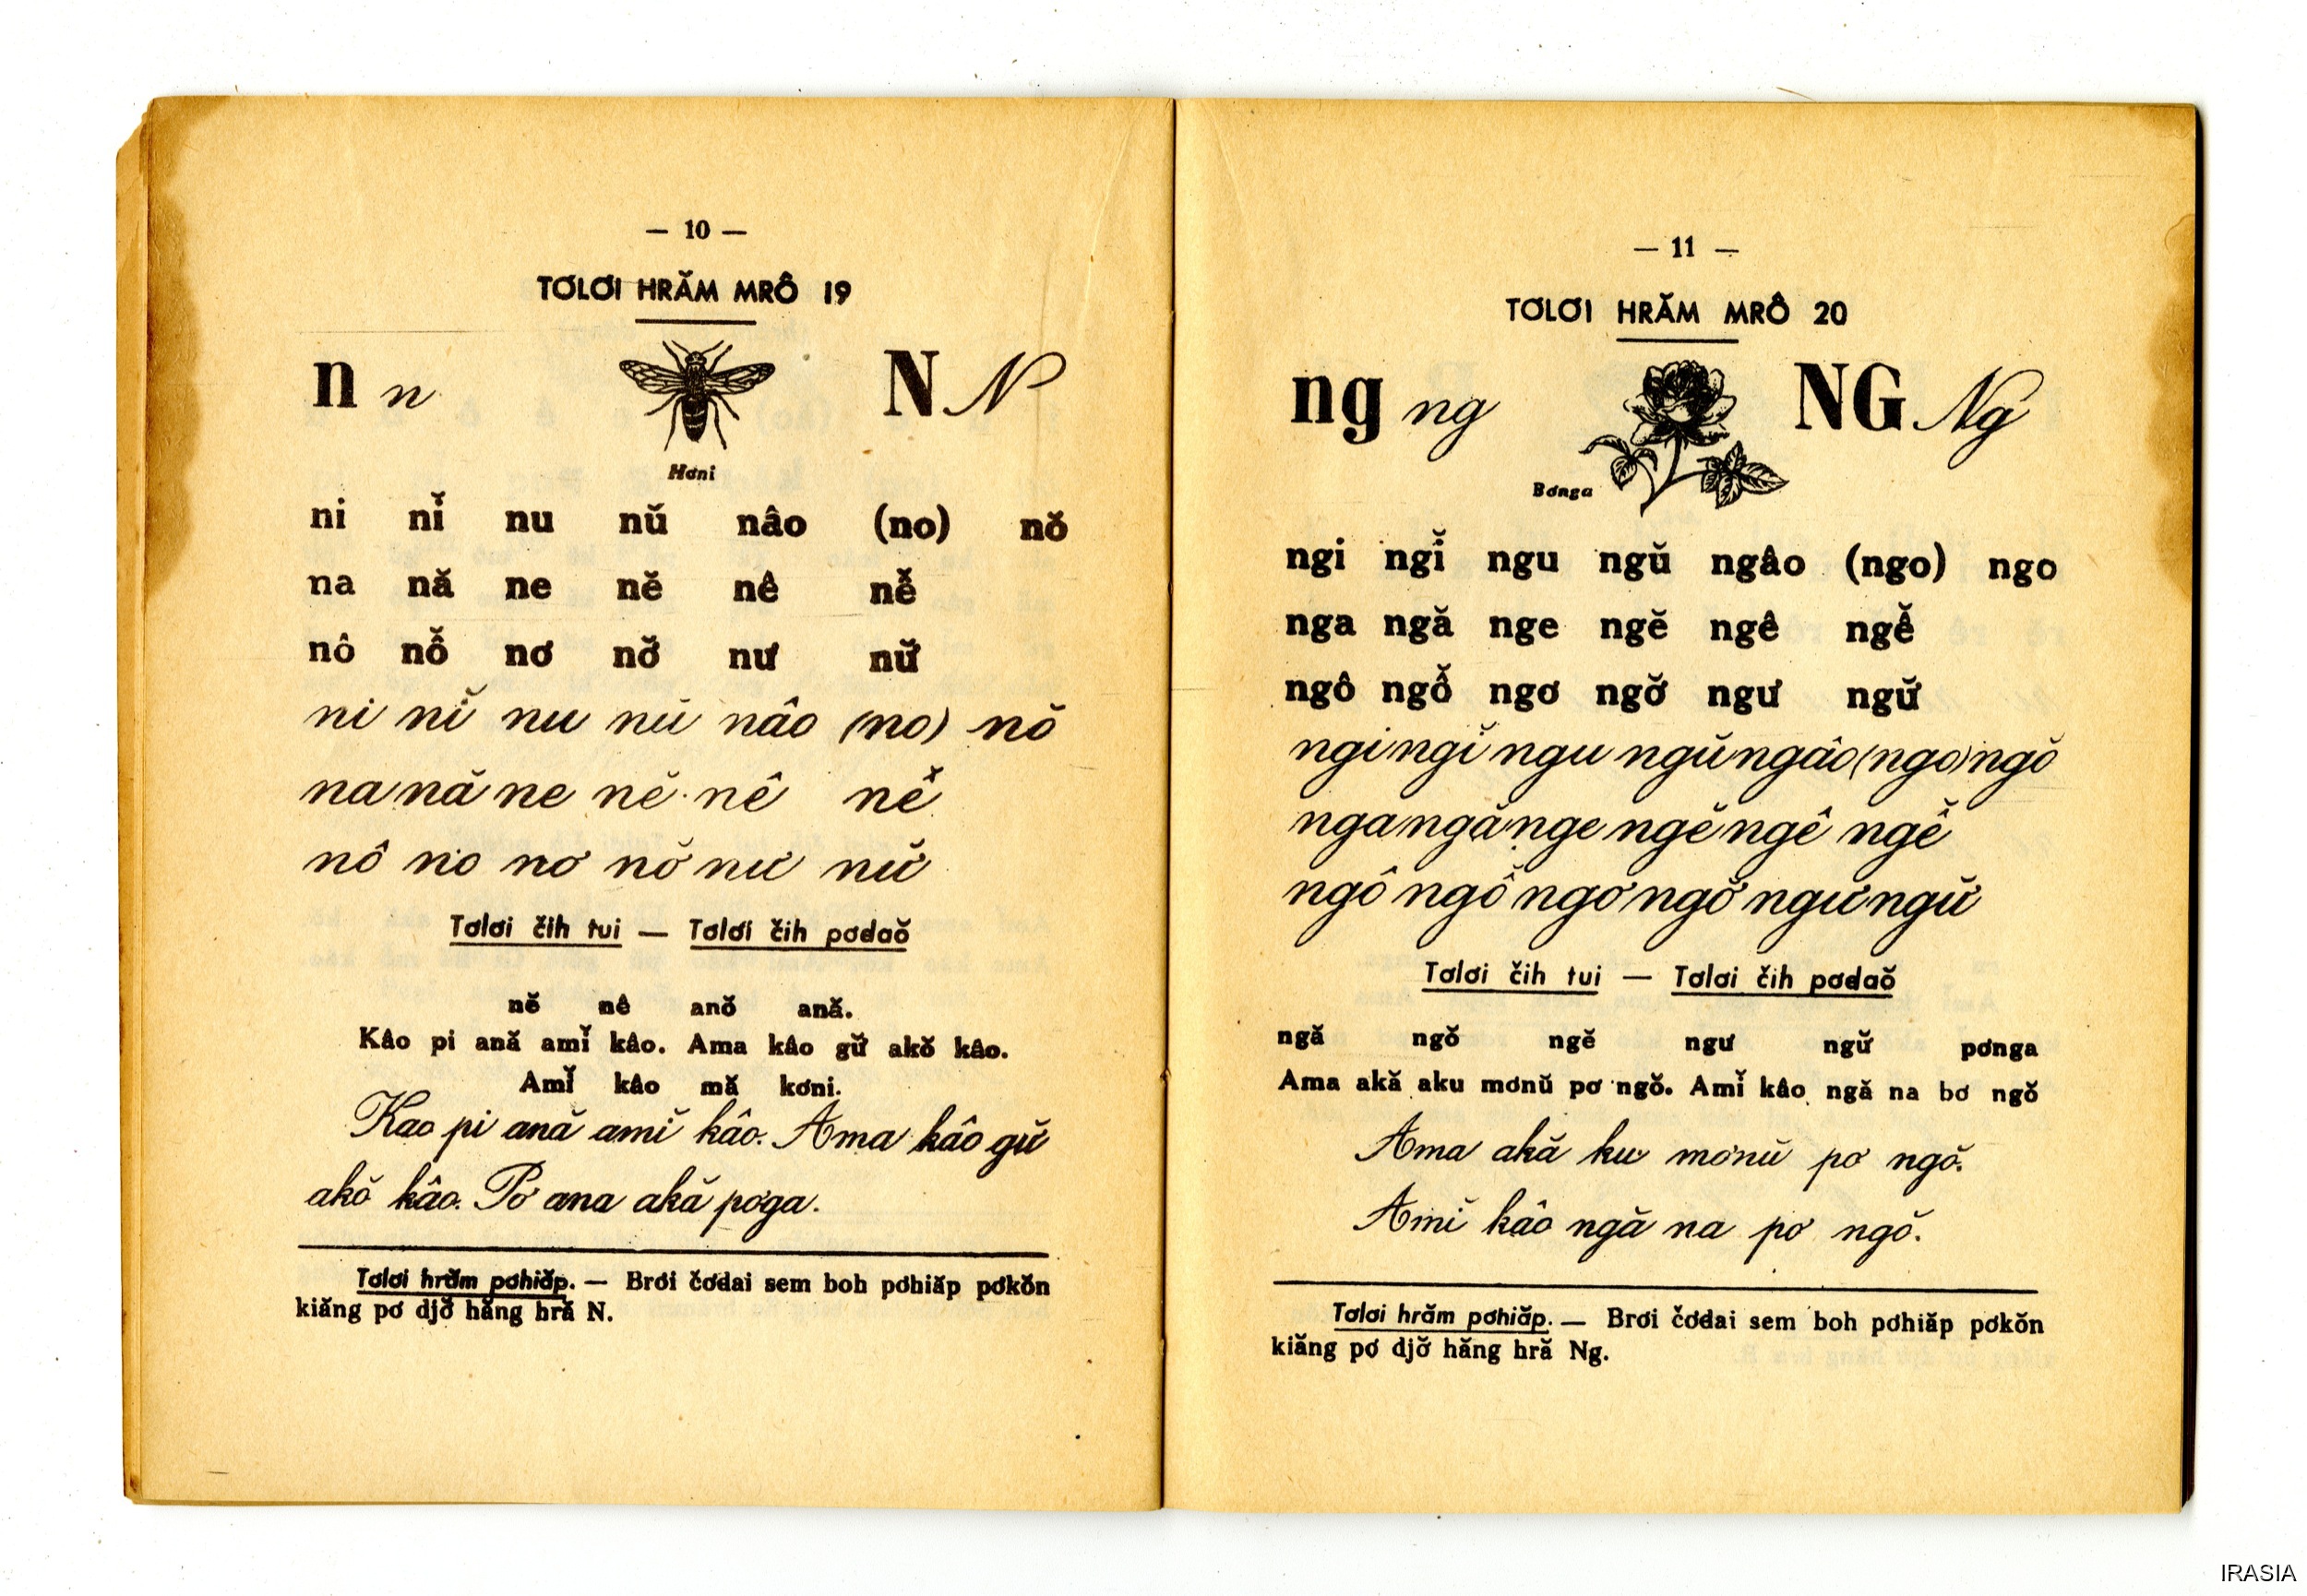 — 10 —
TƠLƠI HRĂM MRÔ 19
n n N N
Hơni
ni nĭ nu nŭ nâo (no) nŏ
na nă ne nĕ nê nê̆
nô nô̆ nơ nơ̆ nư nư̆
ni nĭ nu nŭ nâo (no) nŏ
na nă ne nĕ nê nê̆
nô no nơ nơ̆ nư nư̆
Tơlơi čih tui — Tơlơi čih pơdaŏ
nĕ nê anŏ ană.
Kâo pi ană amĭ kâo. Ama kâo gư̆ akŏ kâo.
Amĭ kâo mă kơni.
Kao pi ană amĭ kâo. Ama kâo gư̆
akŏ kâo. Pơ ana akă pơga.
Tơlơi hrăm pơhiăp. — Brơi čơdai sem boh pơhiăp pơkŏn
kiăng pơ djơ̆ hăng hră N.
— 11 —
TƠLƠI HRĂM MRÔ 20
ng ng NG Ng
Bơnga
ngi ngĭ ngu ngŭ ngâo (ngo) ngo
nga ngă nge ngĕ ngê ngê̆
ngô ngô̆ ngơ ngơ̆ ngư ngư̆
ngi ngĭ ngu ngŭ ngâo (ngo) ngŏ
nga ngă nge ngĕ ngê ngê̆
ngô ngô̆ ngơ ngơ̆ ngư ngư̆
Tơlơi čih tui — Tơlơi čih pơdaŏ
ngă ngŏ ngĕ ngư ngư̆ pơnga
Ama akă aku mơnŭ pơ ngŏ. Amĭ kâo ngă na bơ ngŏ
Ama akă ku mơnŭ pơ ngŏ.
Amĭ kâo ngă na pơ ngŏ.
Tơlơi hrăm pơhiăp. — Brơi čơdai sem boh pơhiăp pơkŏn
kiăng pơ djơ̆ hăng hră Ng.
IRASIA